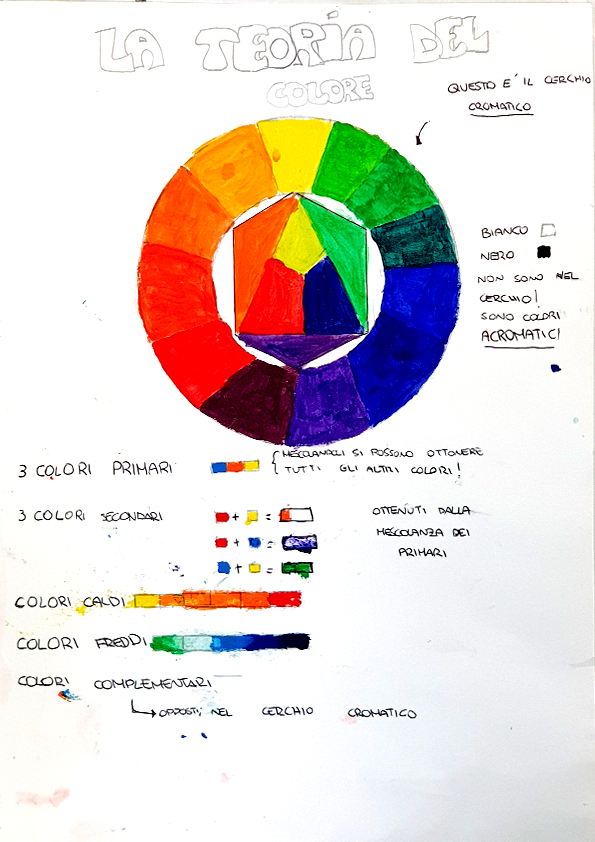 LA TEORÍA DEL
COLORE
QUESTO E' IL CERCHIO
CROMATICO
BIANCO
NERO
NON SONO NEL
CERCHIO!
SONO COLORI
ACROMATICI
3 COLORI PRIMARI
MESCOLANDOLI SI POSSONO OTTENERE
TUTTI GLI ALTRI COLORI!
3 COLORI SECONDARI
+ =
+ =
+ =
OTTENUTI DALLA
MESCOLANZA DEI
PRIMARI
COLORI CALDI
COLORI FREDDI
COLORI COMPLEMENTARI
OPPOSTI NEL CERCHIO CROMATICO